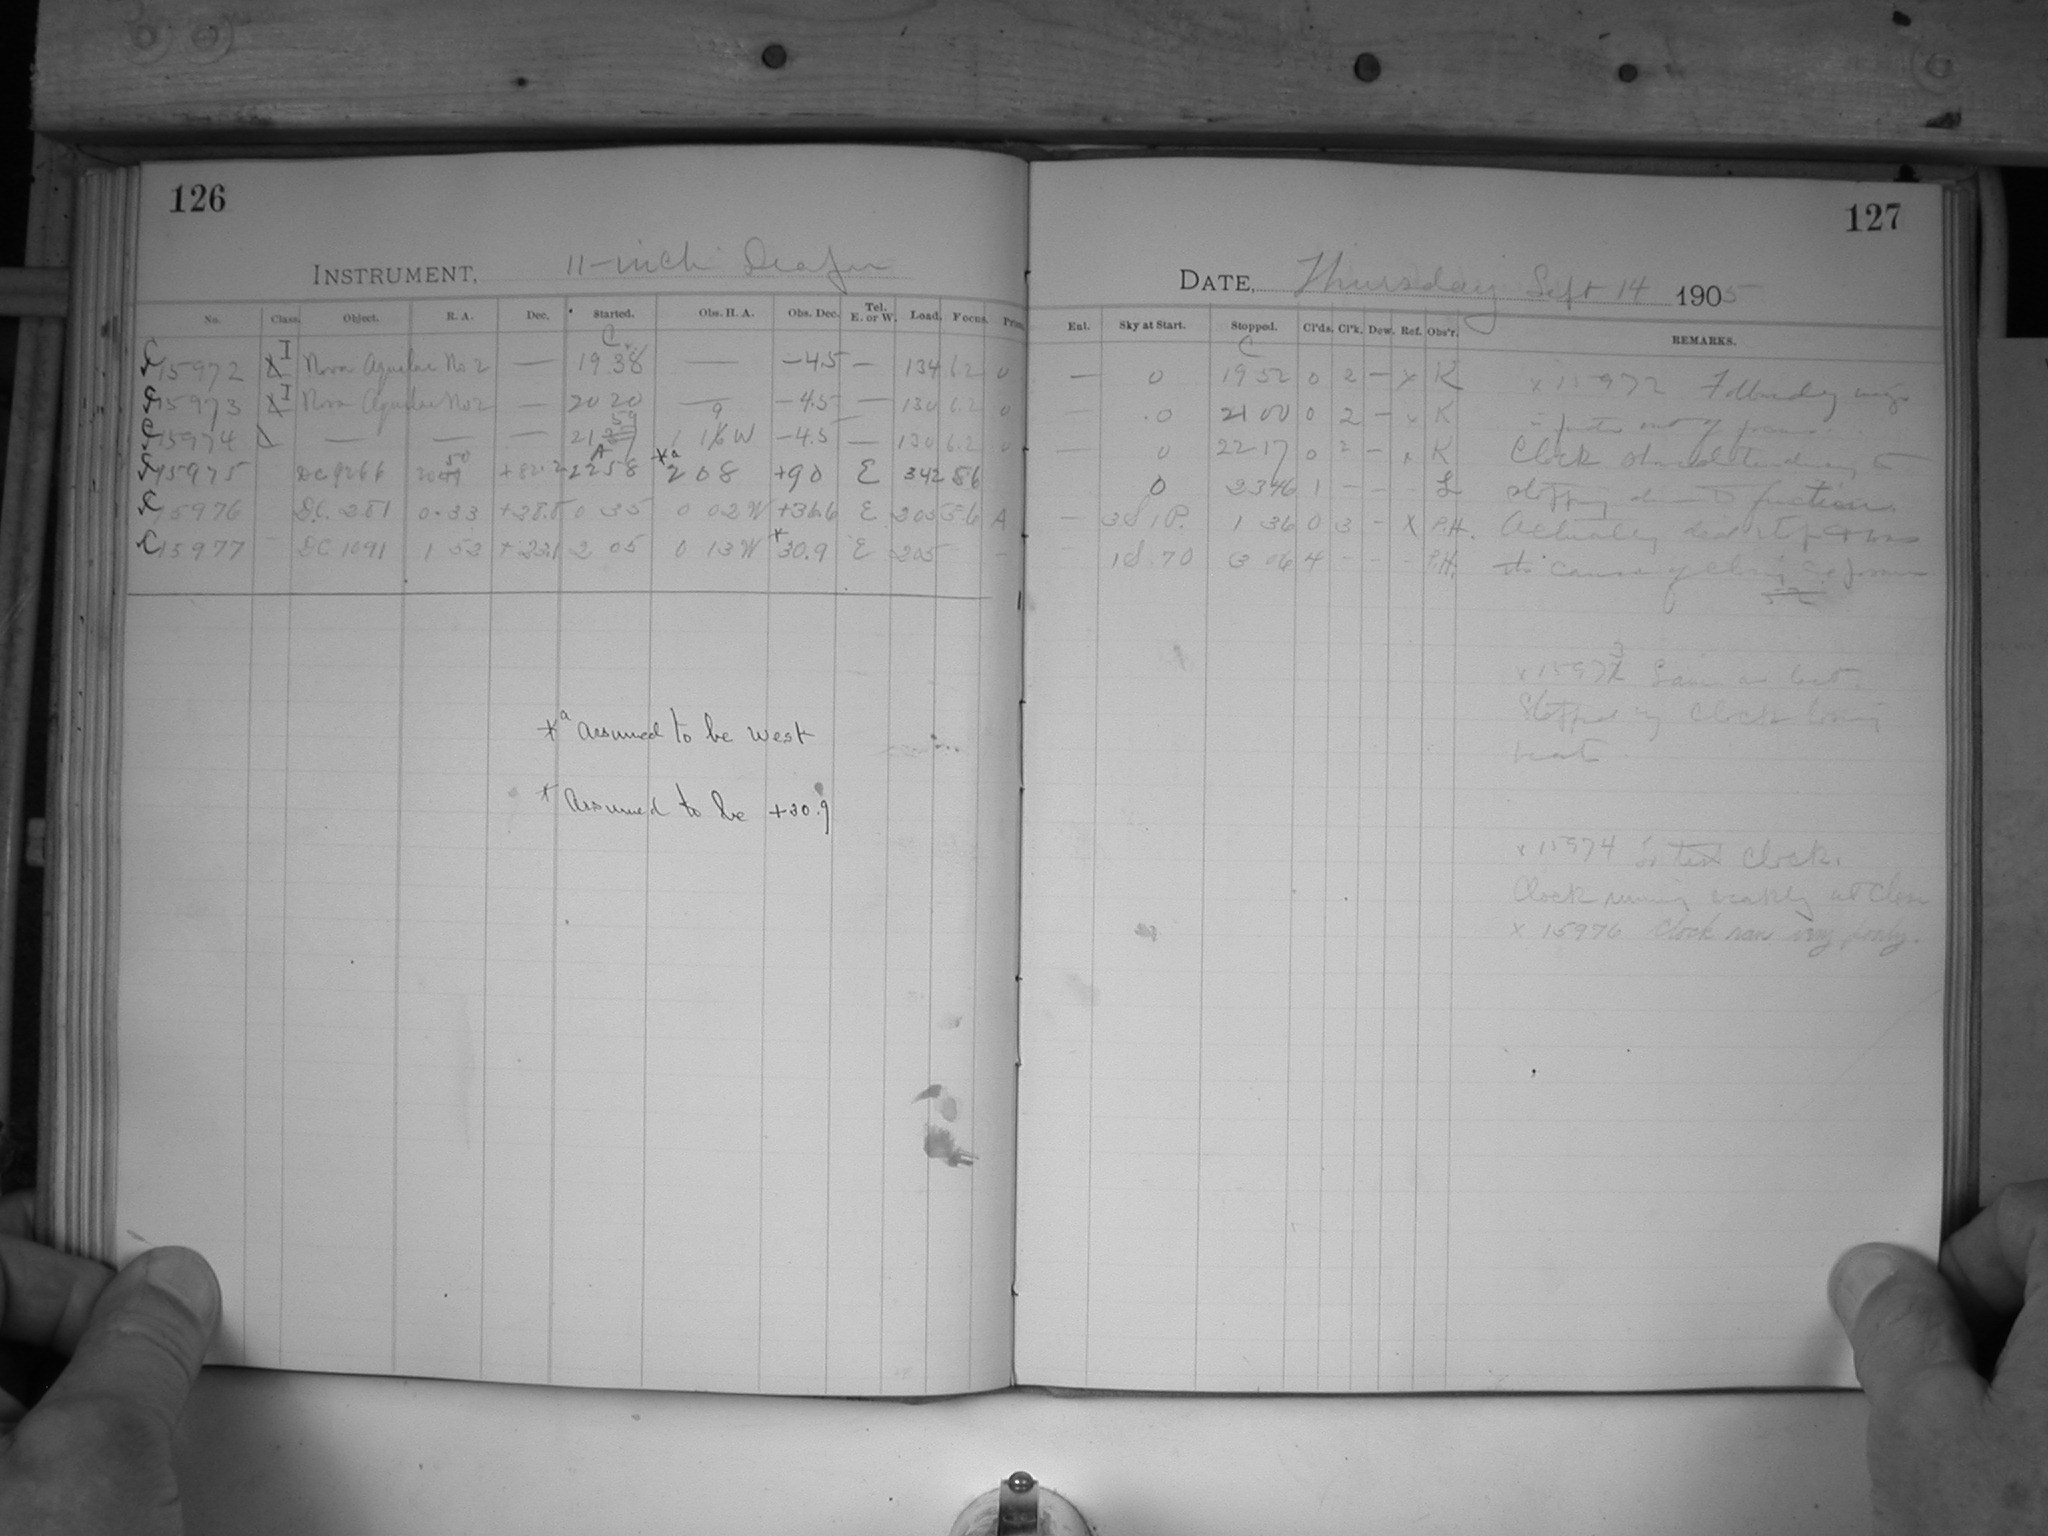 126
INSTRUMENT, 11-inch Draper
No. Class. Object. R. A. Dec. Started. Obs. H. A. Obs. Dec. Tel. E. or W. Load. Focus. Prism
C
C 15972 X I Nova Aquilae No 2 — 19 38 — −4.5 — 134 6.2 0
C 15973 X I Nova Aquilae No 2 — 20 20 — −4.5 — 130 6.2 0
C 15974 — — — 21 59 1 W −4.5 — 130 6.2 0
C 15975 DC 9266 20 50 +82.2 A 22 58 *a 2 08 +90 E 342 5.6
C 15976 D.C. 281 0.33 +28.8 0 35 0 02 W +36.6 E 205 5.6 A
C 15977 DC 1091 1 53 +23.1 2 05 0 13 W *30.9 E 205 — —
*a assumed to be west
* assumed to be +30.9
127
DATE, Thursday Sept 14 1905
Enl. Sky at Start. Stopped. Cl'ds. Cl'k. Dew. Ref. Obs'r. REMARKS.
C
— 0 19 52 0 2 — x K x 15972 Following
0 21 00 0 2 — x K out of focus
— 0 22 17 0 2 — x K Clock showed tendency to
0 23 46 1 - - - L stopping due to friction
— 3S 1P. 1 36 0 3 — X P.H. Actually did stop & was
1S.70 3 06 4 - - - P.H. the cause of closing exposure
x 15973 Same as last.
Stopped by clock losing
x 15974 To test clock.
Clock running weakly at close
x 15976 Clock ran very poorly.